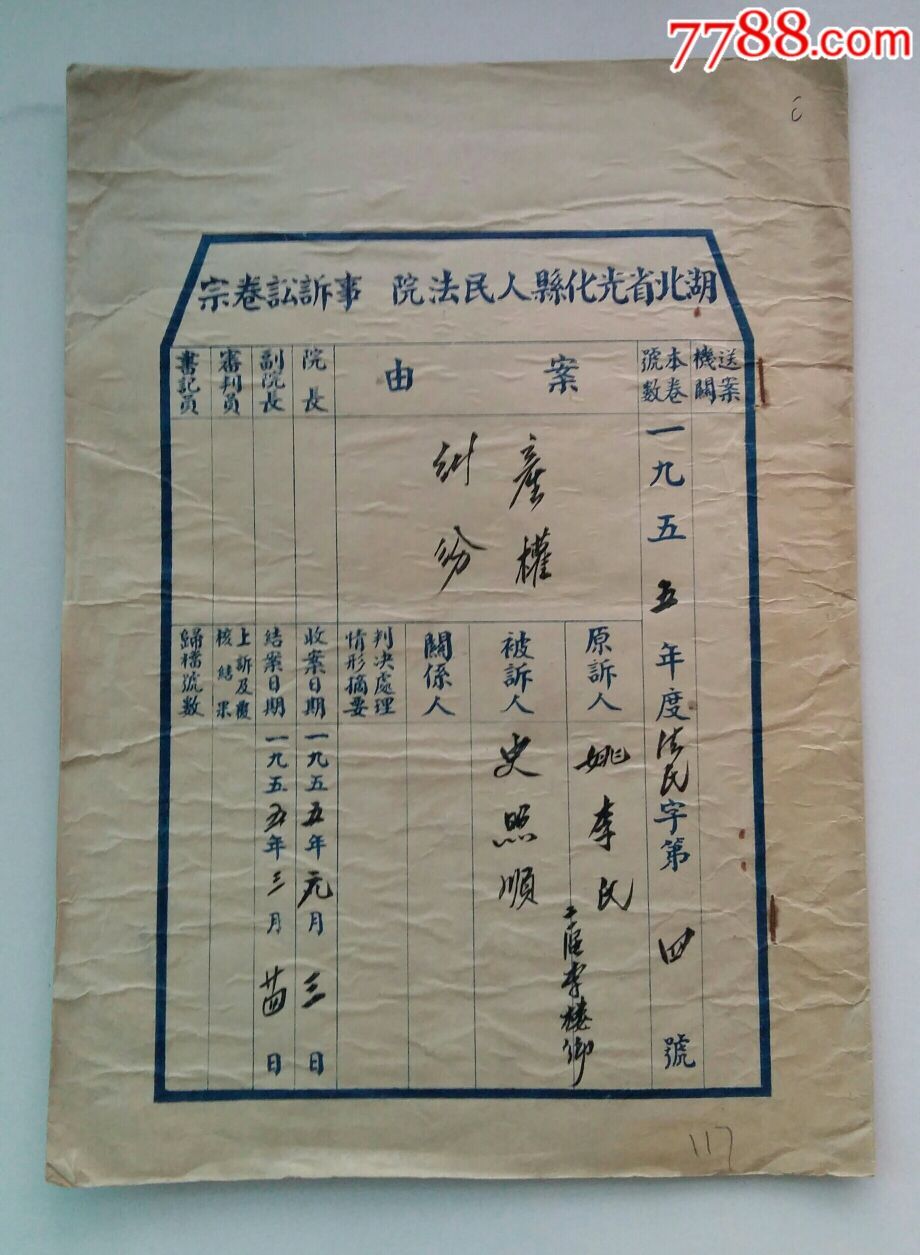 7788.com
湖北省光化縣人民法院 事訴訟卷宗
送案機關
本卷號數
一九五五年度法民字第四號
案由
產權
糾紛
原訴人
姚李氏
二區李樓鄉
被訴人
史照順
關係人
判決處理情形摘要
院長
收案日期
一九五五年元月三日
副院長
結案日期
一九五五年三月廿四日
審判員
上訴及覆核結果
書記員
歸檔號數
117